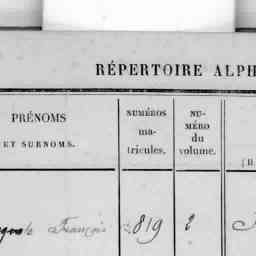 RÉPERTOIRE ALPH
PRÉNOMS
ET SURNOMS.
NUMÉROS
ma-
tricules.
NU-
MÉRO
du
volume.
François 819 2